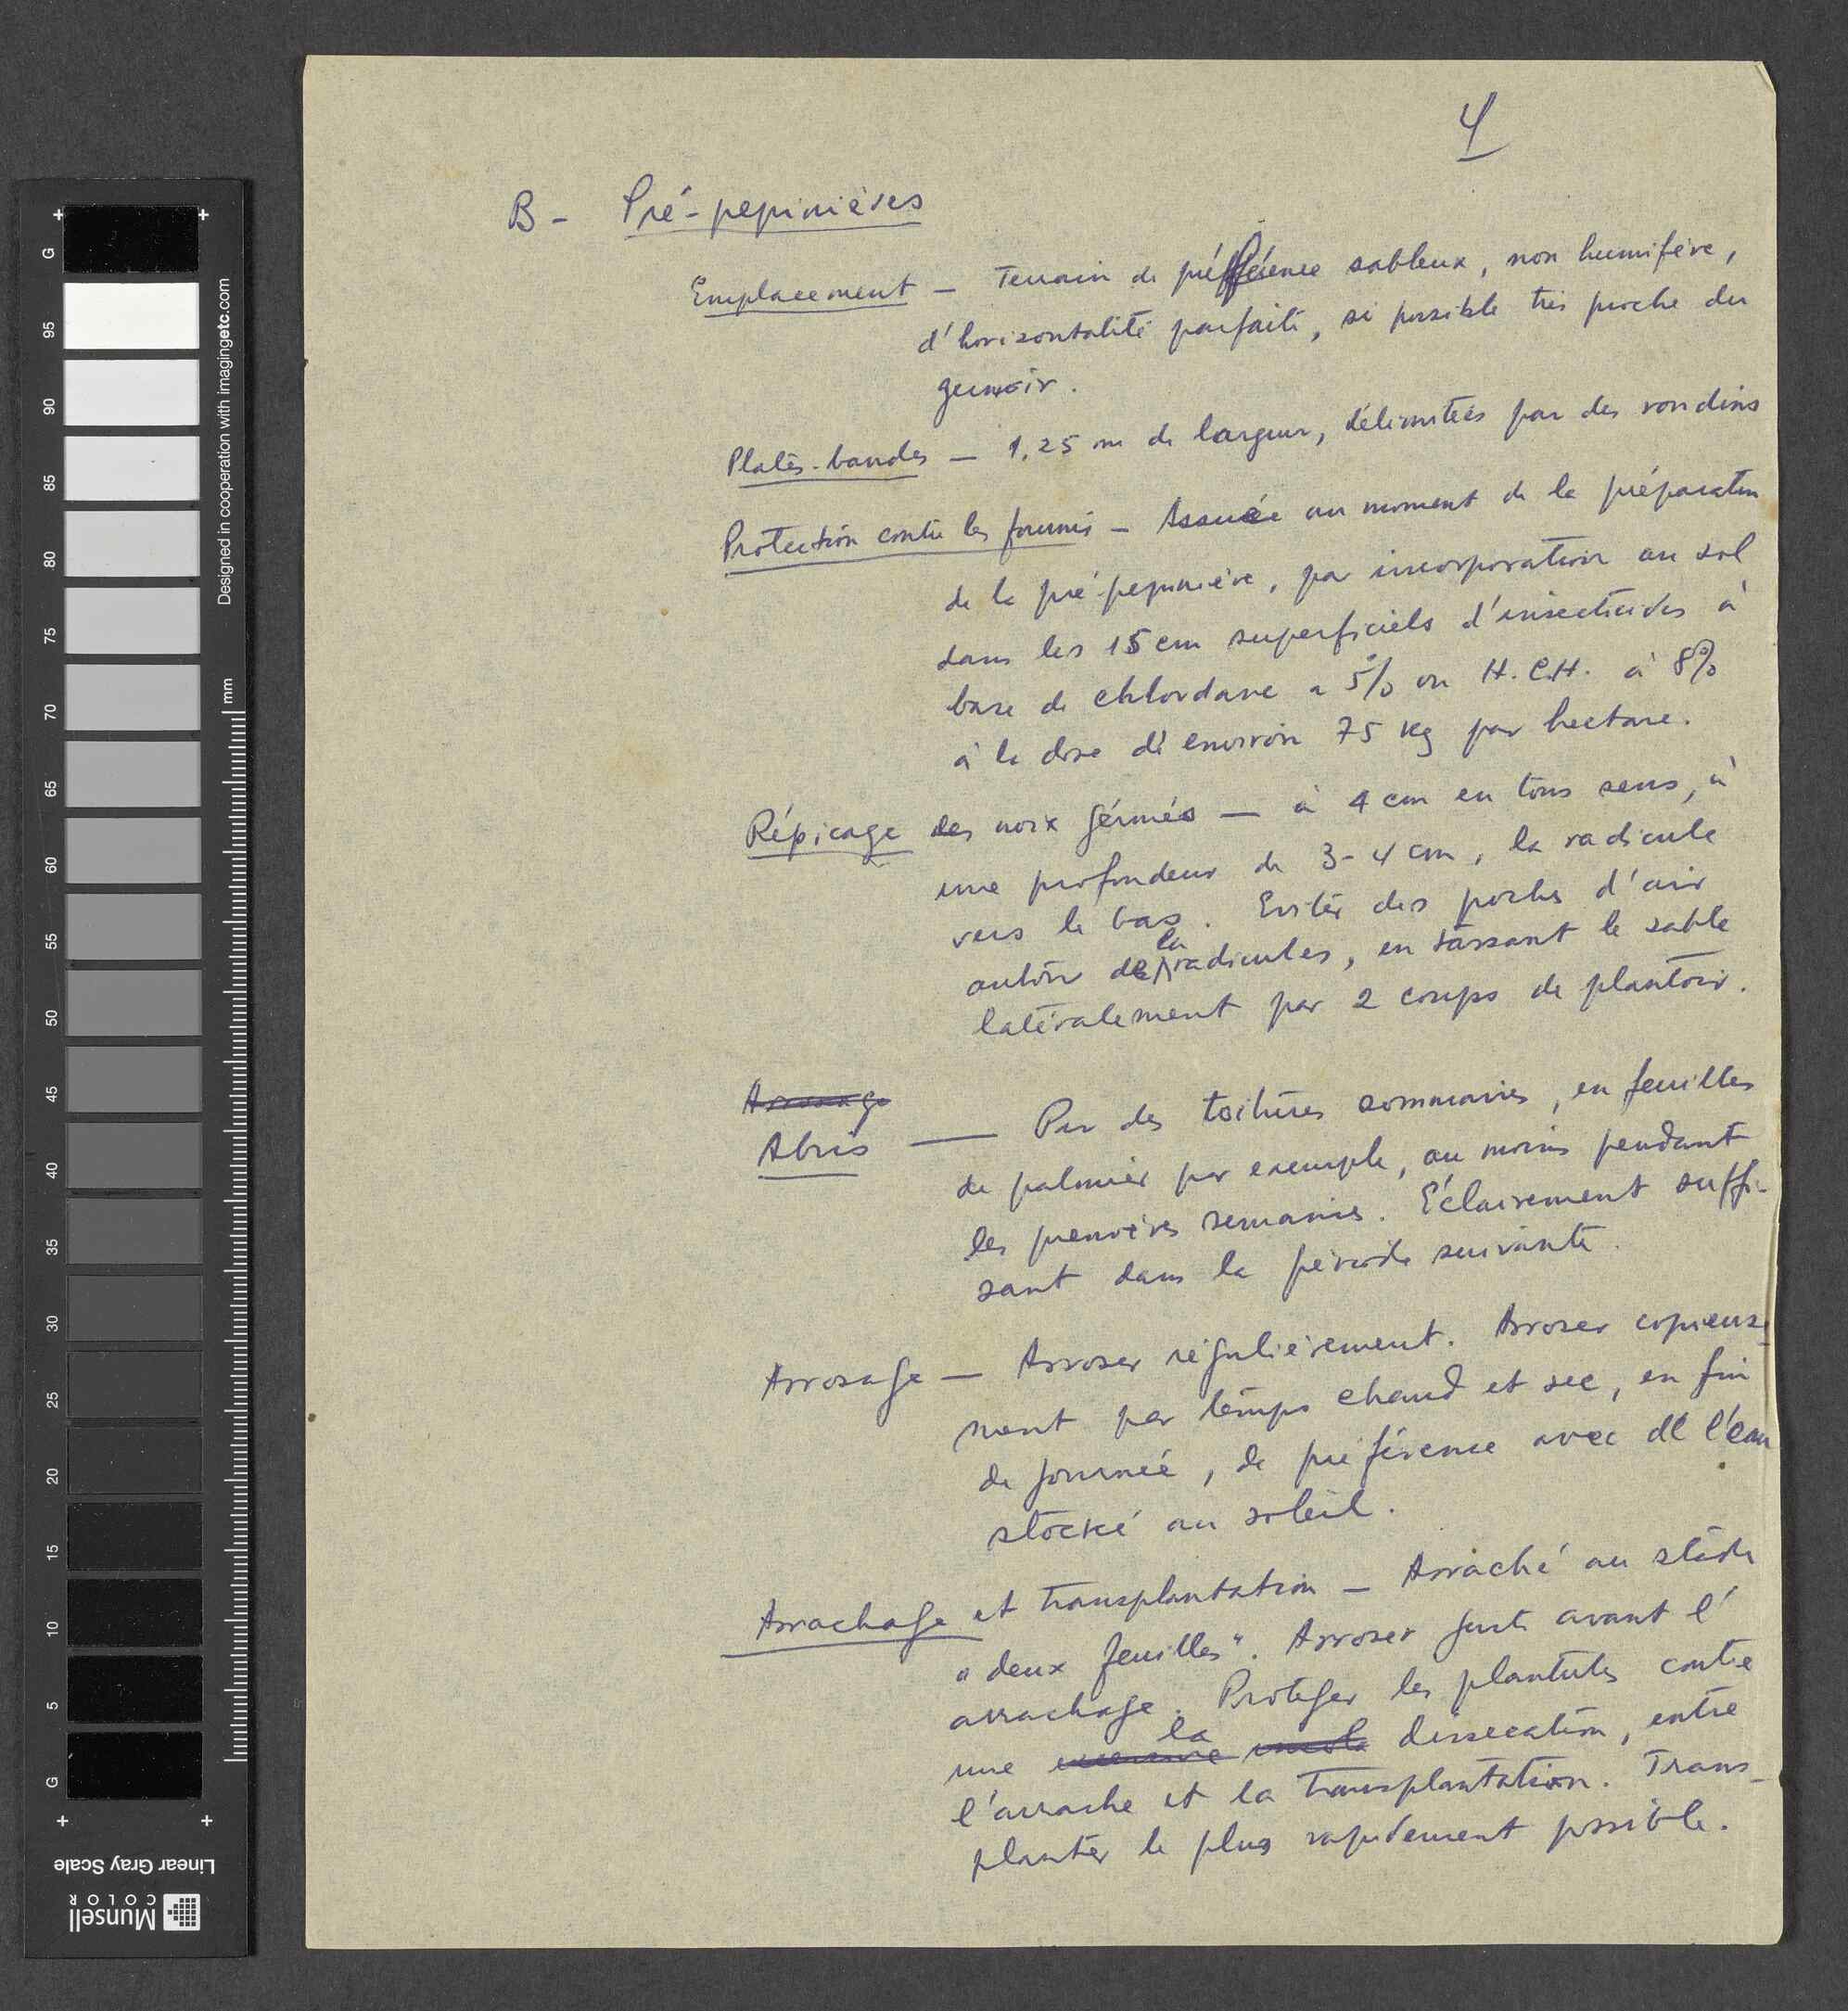 4
B - Pré-pepinières
Emplacement - Terrain de préférence sableux, non humifère,
d'horizontalité parfaite, si possible très proche du
germoir.
Plates-bandes - 1,25 m de largeur, délimitées par des rondins
Protection contre les fourmis - Assurée au moment de la préparation
de la pré-pepinière, par incorporation au sol
dans les 15 cm superficiels d'insecticides à
base de chlordane a 5% ou H.C.H. à 8%
à la dose d'environ 75 kg par hectare.
Répicage des noix gérmés - à 4 cm en tous sens, à
une profondeur de 3-4 cm, la radicule
vers le bas. Eviter des poches d'air
autour de la radicules, en tassant le sable
latéralement par 2 coups de plantoir.
Arrosage
Abris - Par des toitures sommaires, en feuilles
de palmier par exemple, au moins pendant
les premières semaines. Eclairement suffi-
sant dans la période suivante.
Arrosage - Arroser régulièrement. Arroser copieuse-
ment par temps chaud et sec, en fin
de journée, de préférence avec de l'eau
stocké au soleil.
Arrachage et transplantation - Arraché au stade
"deux feuilles". Arroser juste avant l'
arrachage. Protéger les plantules contre
une la dissecation, entre
l'arrache et la transplantation. Trans-
planter le plus rapidement possible.
G
95
90
85
80
75
70
65
60
55
50
45
40
35
30
25
20
15
10
5
G
mm
Designed in cooperation with imagingetc.com
Linear Gray Scale
Munsell
COLOR